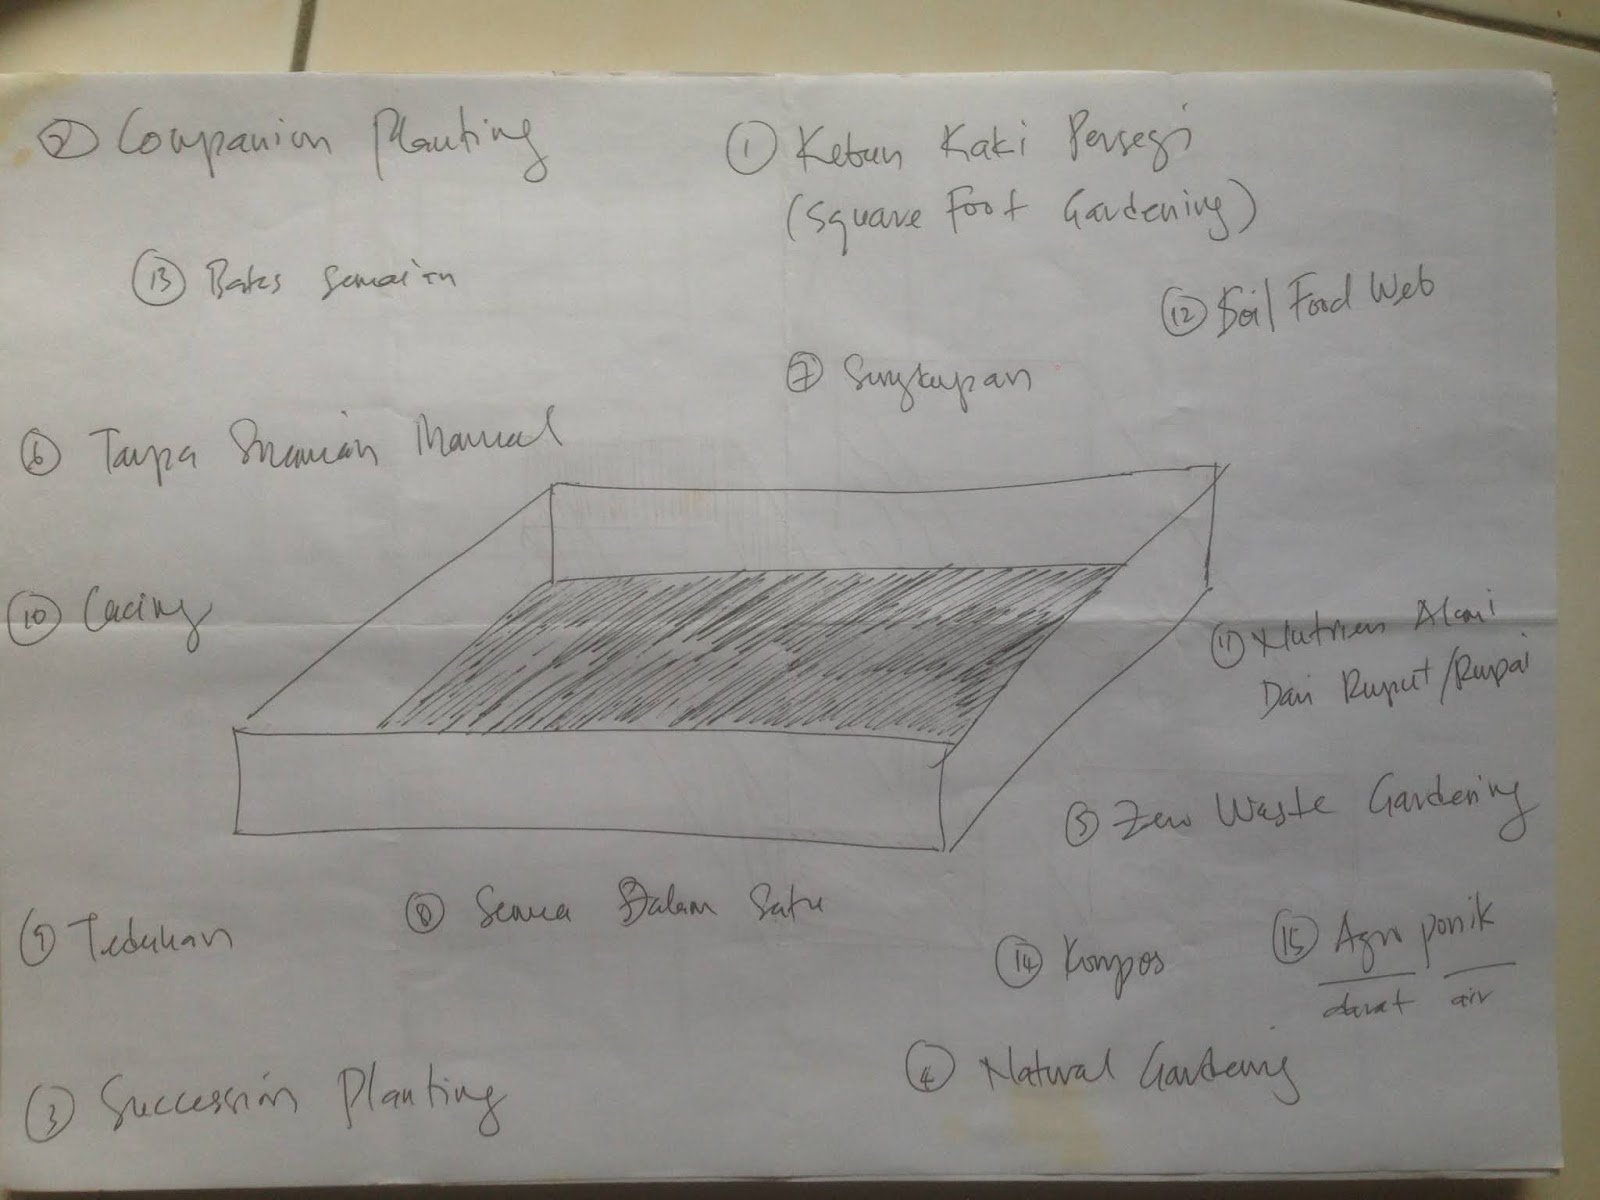 ② Companion Planting
① Kebun Kaki Persegi
(Square Foot Gardening)
⑬ Batas Semaian
⑫ Soil Food Web
⑦ Sungkupan
⑥ Tanpa Siraman Manual
⑩ Cacing
⑪ Nutrien Alami
Dari Rumput/Rumpai
⑤ Zero Waste Gardening
⑧ Semua Dalam Satu
⑨ Teduhan
⑭ Kompos
⑮ Agro ponik
darat air
④ Natural Gardening
③ Succession Planting